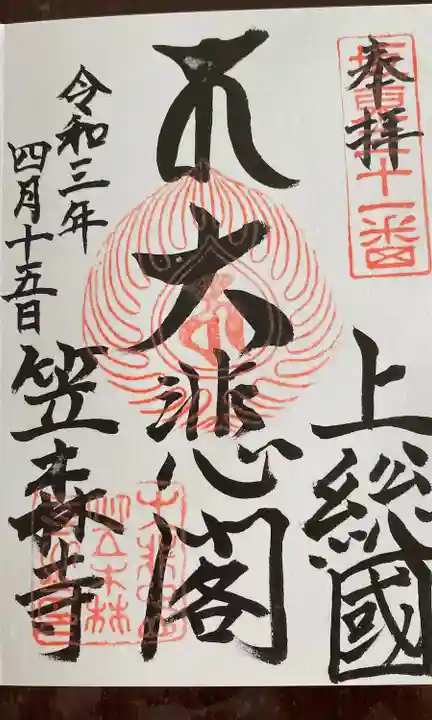 奉拝
上総國
大悲閣
令和三年
四月十五日
笠森寺